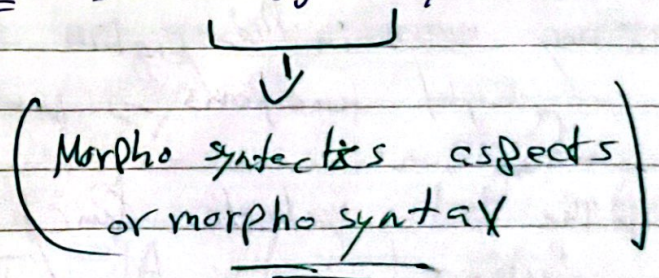 (Morpho syntectis aspects
or morpho syntax)